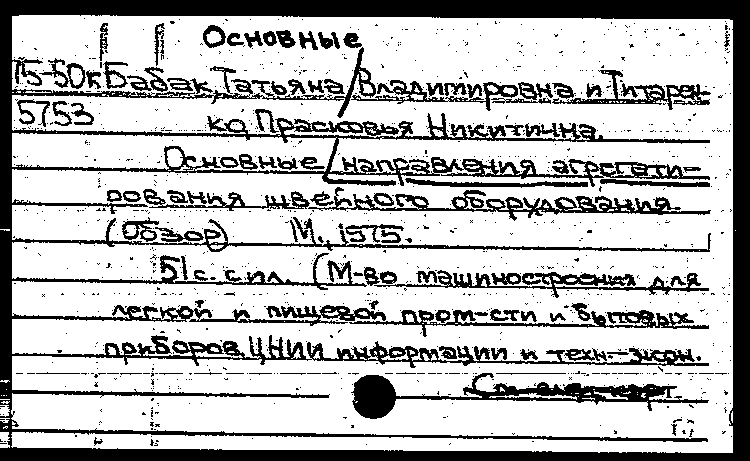 Основные
75-50к Бабак, Татьяна Владимировна и Титарен-
5753 ко, Прасковья Никитична.
Основные направления агрегати-
рования швейного оборудования.
(Обзор) М., 1975.
51 с. с ил. (М-во машиностроения для
легкой и пищевой пром-сти и бытовых
приборов. ЦНИИ информации и техн.-экон.
См. след. карт.